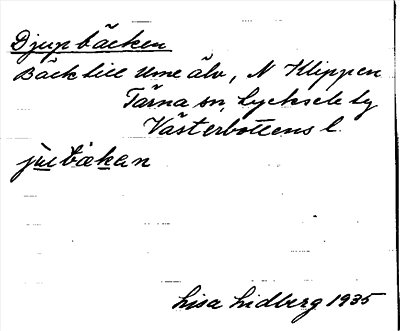 Djupbäcken
Bäck till Ume älv, N Klippen
Tärna sn, Lycksele lg
Västerbottens l.
jʉ̀bäkan
Lisa Lidberg 1935